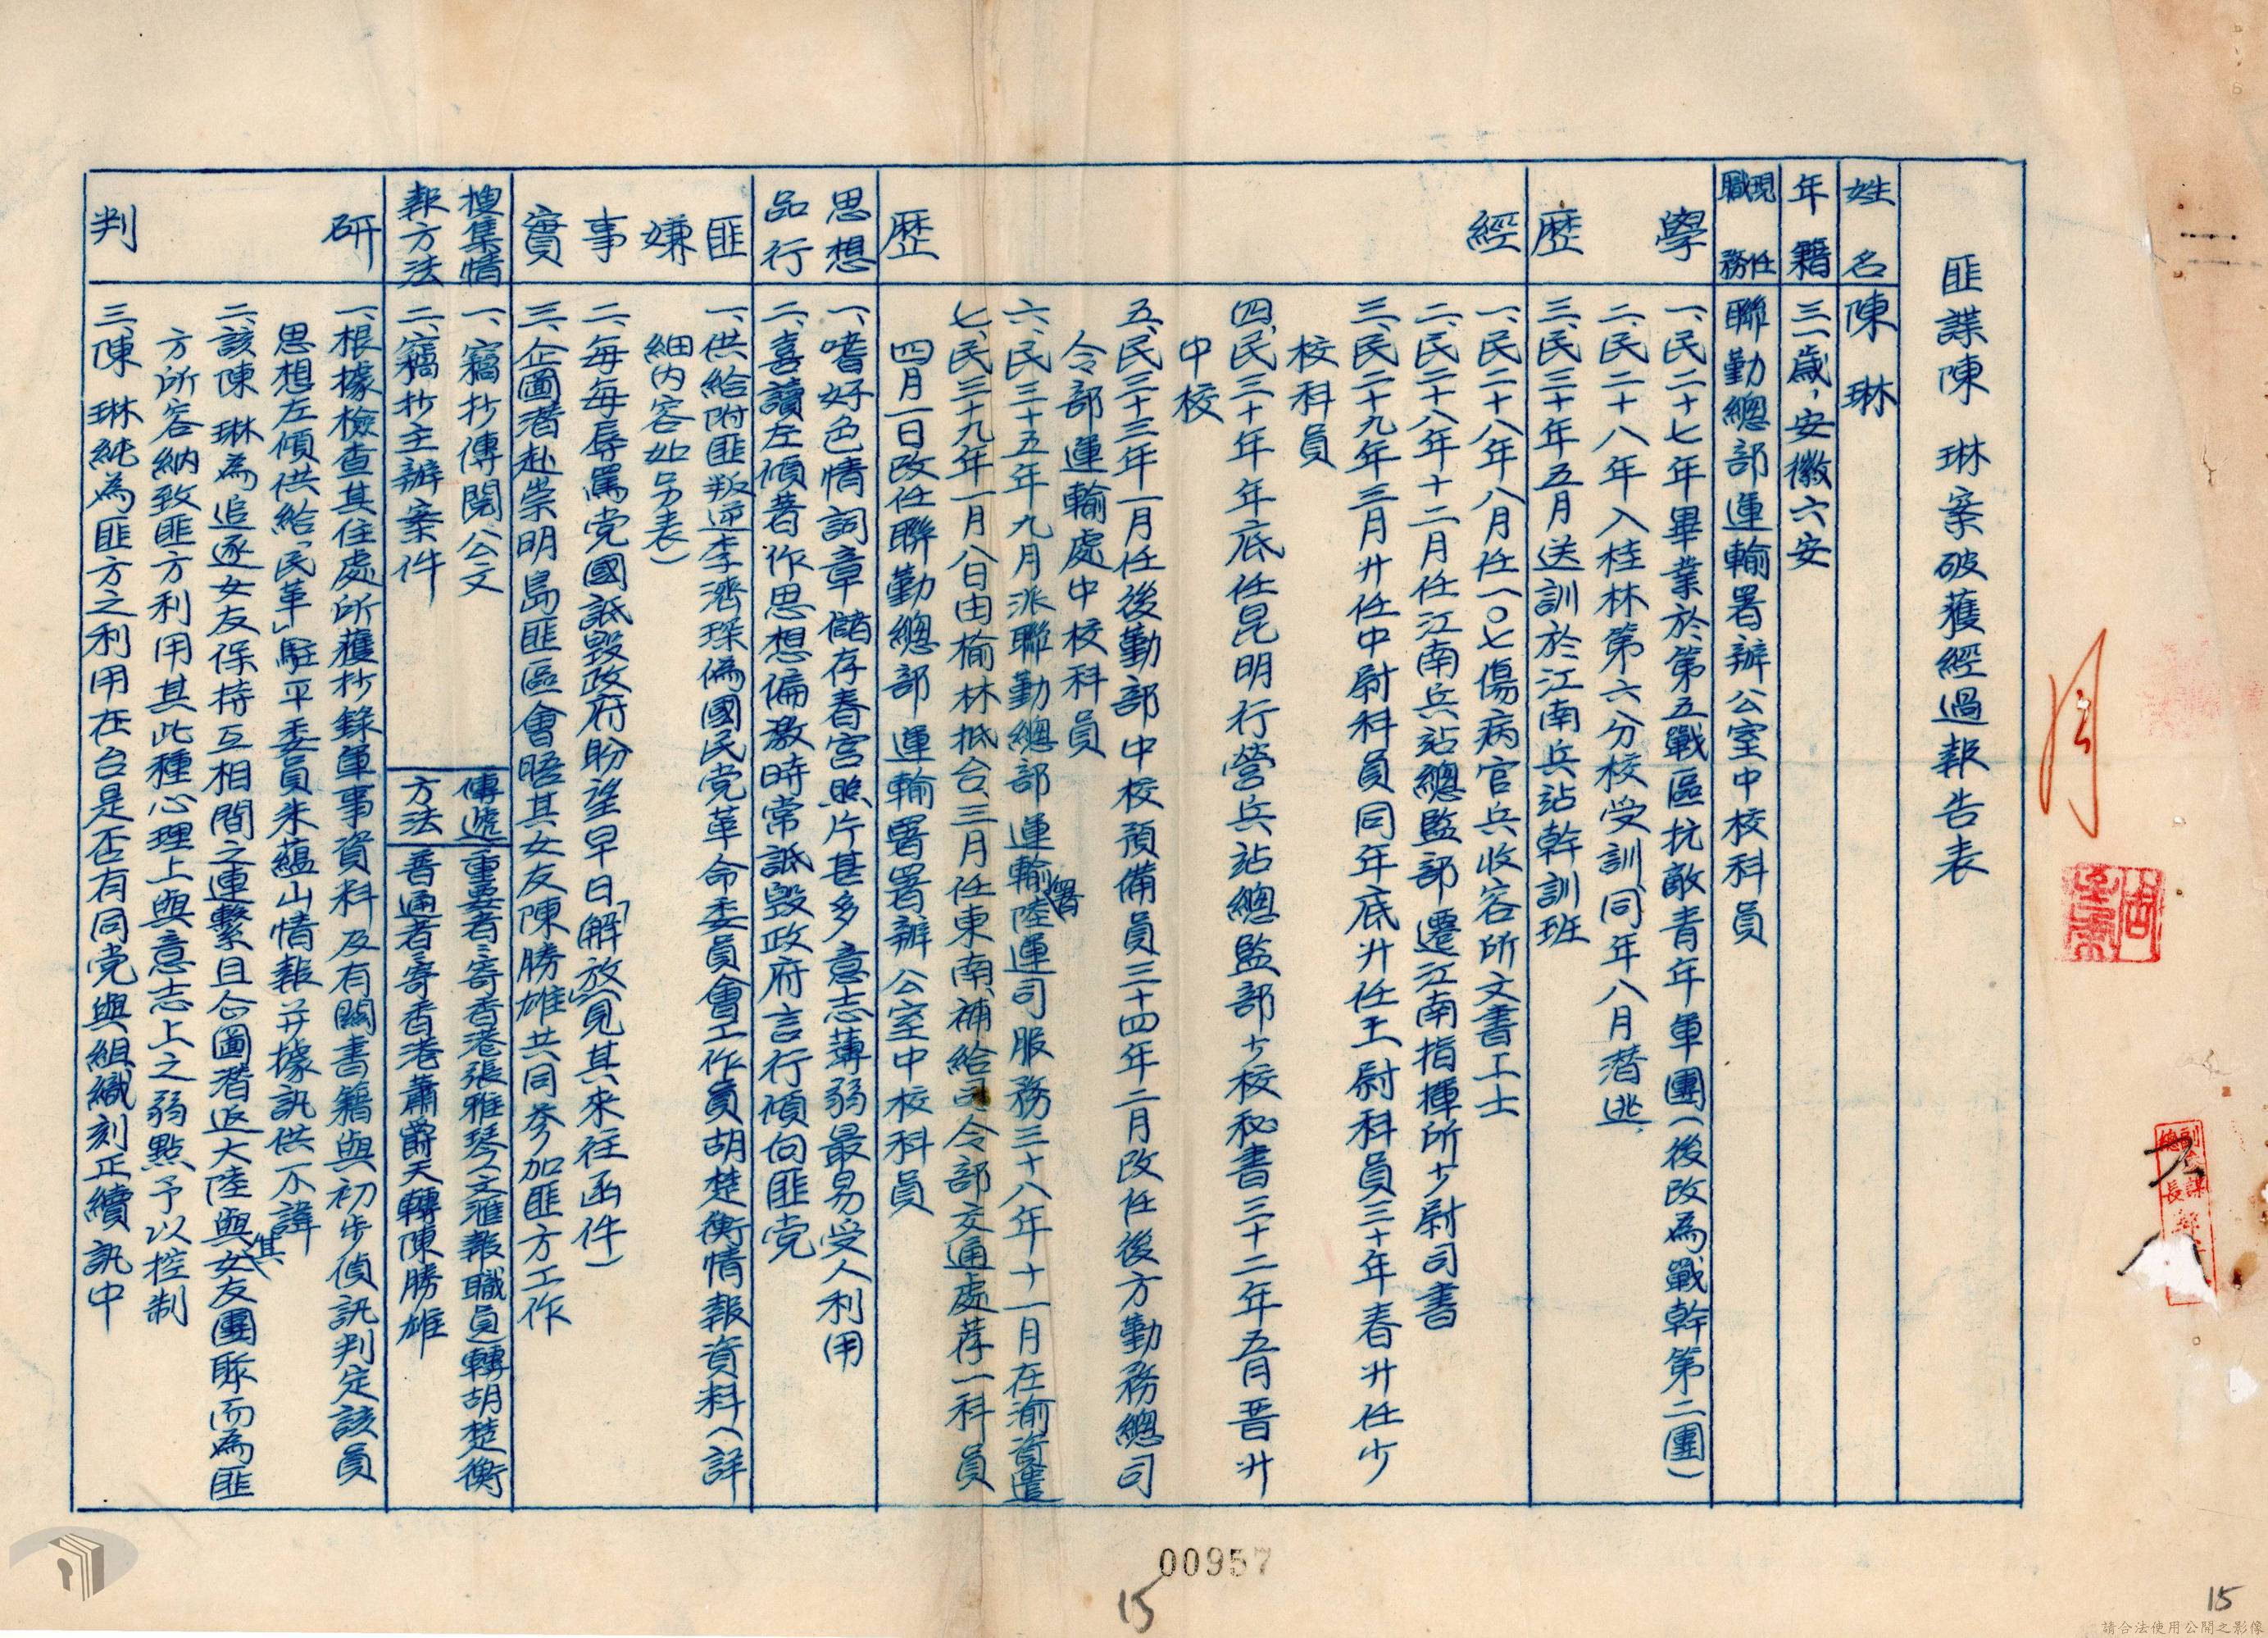 匪諜陳 琳案破獲經過報告表
姓名
陳 琳
年籍
三一歲，安徽六安
現任職務
聯勤總部運輸署辦公室中校科員
學歷
一、民二十七年畢業於第五戰區抗敵青年軍團（後改為戰幹第二團）
二、民二十八年入桂林第六分校受訓同年八月潛逃，
三、民三十年五月送訓於江南兵站幹訓班
經歷
一、民二十八年八月任一〇七傷病官兵收容所文書上士
二、民二十八年十二月任江南兵站總監部遷江南指揮所少尉司書
三、民二十九年三月升任中尉科員同年底升任上尉科員三十年春升任少
校科員
四、民三十年年底任昆明行營兵站總監部少校秘書三十二年五月晋升
中校
五、民三十三年一月任後勤部中校預備員三十四年二月改任後方勤務總司
令部運輸處中校科員
六、民三十五年九月派聯勤總部運輸署陸運司服務三十八年十一月在渝資遣
七、民三十九年一月八日由榆林抵台三月任東南補給司令部交通處荐一科員
四月一日改任聯勤總部運輸署署辦公室中校科員
思想品行
一、嗜好色情詞章儲存春宮照片甚多意志薄弱最易受人利用
二、喜讀左傾著作思想偏激時常詆毀政府言行傾向匪党
匪嫌事實
一、供給附匪叛逆李濟琛偽國民党革命委員會工作員胡楚衡情報資料（詳
細內容如另表）
二、每每辱罵党國詆毀政府盼望早日「解放」（見其來往函件）
三、企圖潛赴崇明島匪區會晤其女友陳勝雄共同參加匪方工作
搜集情報方法
一、竊抄傳閱公文
二、竊抄主辦案件
傳遞方法
重要者：寄香港張雅琴文滙報職員轉胡楚衡
普通者：寄香港蕭爵天轉陳勝雄
研判
一、根據檢查其住處所獲抄錄軍事資料及有關書籍與初步偵訊判定該員
思想左傾供給「民革」駐平委員朱蘊山情報并據訊供不諱
二、該陳 琳為追逐女友保持互相間之連繫且企圖潛返大陸與其女友團聚而為匪
方所容納致匪方利用其此種心理上與意志上之弱點予以控制
三、陳 琳純為匪方之利用在台是否有同党與組織刻正續訊中
00957
15
15
請合法使用公開之影像